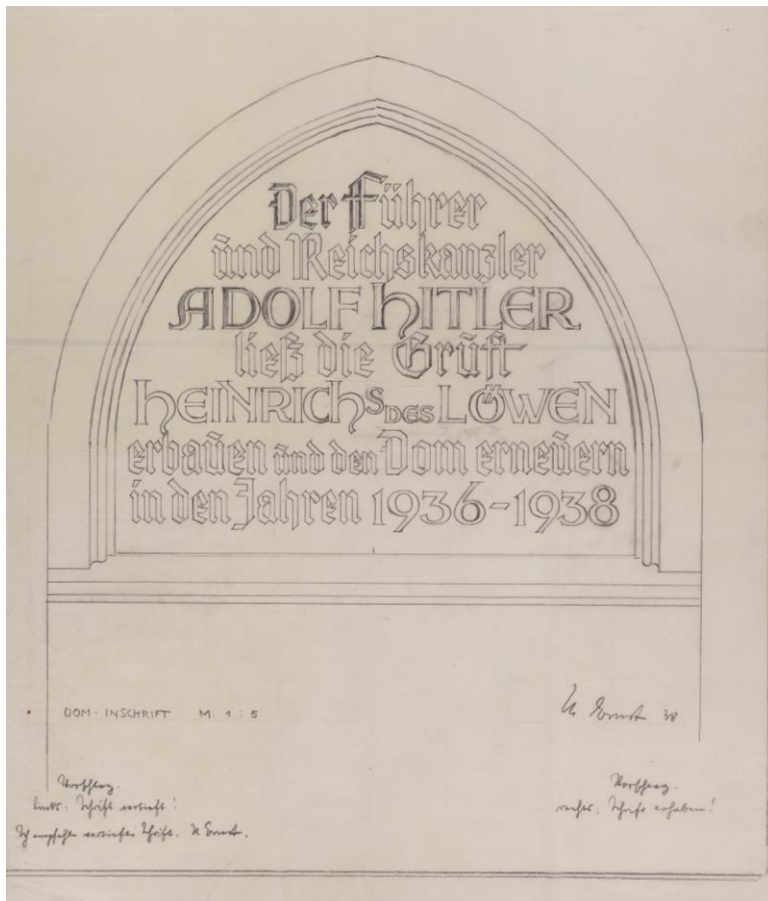 Der Führer
und Reichskanzler
ADOLF HITLER
ließ die Gruft
HEINRICHS DES LÖWEN
erbauen und den Dom erneuern
in den Jahren 1936-1938
DOM-INSCHRIFT M. 1:5
Ernst 38
Vorschlag.
links: Schrift vertieft!
Ich empfehle vertiefte Schrift. Ernst.
Vorschlag.
rechts: Schrift erhaben!